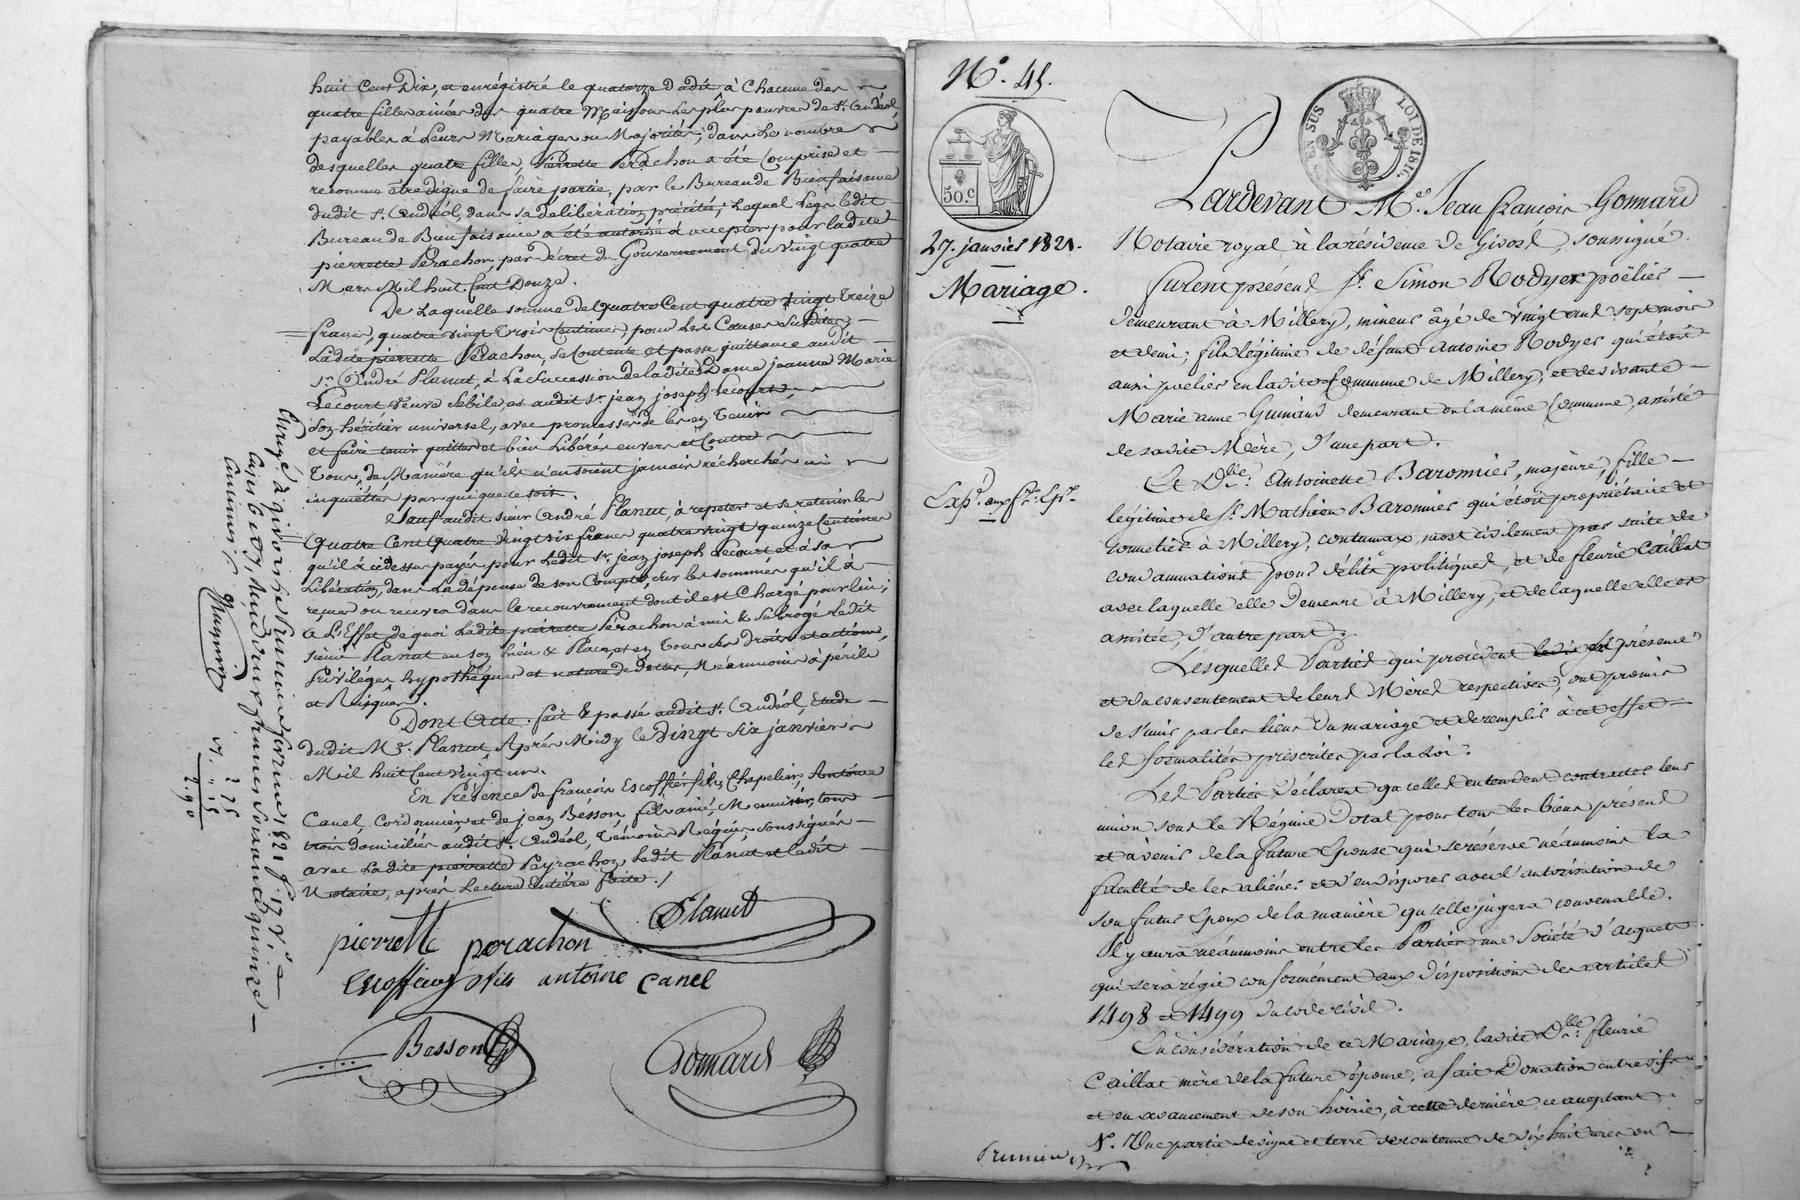 huit Cent Dix, et enrégistré le quatorze dudit à Chacune des
quatre filles ainées des quatre Maisons les plus pauvres de St. Andéol,
payables à Leurs Mariages ou Majorités; dans Le nombre
desquelles quatre filles, Pierrette Pérachon a été Comprise et
reconnue être digne de faire partie, par le Bureau de Bienfaisance
dudit St. Andéol, dans sa délibération précitée; Laquel Legs Ledit
Bureau de Bienfaisance a été autorisé à accepter pour ladite
pierrette Pérachon, par Décret du Gouvernement du vingt quatre
Mars Mil huit Cent Douze.
De Laquelle somme de Quatre Cent quatre vingt Treize
francs, quatre vingt Trois Centimes, pour Les Causes Susdites,
Ladite pierrette Pérachon, se Contente et passe quittance audit
Sr. André Planut, à La Succession de ladite Dame jeanne Marie
Lecourt veuve Sebile, et audit Sr. jean joseph Lecourt,
son héritier universel, avec promesse de les en Tenir
et faire tenir quittes et bien Libérés envers et Contre
Tous, de Manière qu'ils n'en soient jamais réchérchés ni
inquiétés par qui que ce soit.
Sauf audit sieur André Planut, à repeter et se retenir les
Quatre Cent Quatre Vingt Six francs quatre vingt quinze Centimes
qu'il à cidessus payés pour Ledit Sr. jean joseph Lecourt et à sa
Libération, dans La dépense de son Compte, sur les sommes qu'il à
reçues ou recevra dans le recouvrement dont il est Chargé pour lui;
à L'Effet de quoi Ladite pierrette Pérachon à mis & Subrogé Ledit
sieur Planut en son Lieu & Place et en Tous ses Droits et actions,
Privilèges hypothèques et nature de Dettes, Néanmoins à périls
et Risques.
Dont Acte. fait & passé audit St. Andéol, Etude
dudit Me. Planut, Après Midy le Vingt Six janvier
Mil huit Cent vingt un.
En Présence de françois Escoffier fils, Chapelier, Antoine
Canel Cordonnier, et de jean Bésson, fils ainé, Menuisier, tous
trois domiciliés audit St. Andéol, Témoins Réquis, soussignés
avec Ladite pierrette Peyrachon, Ledit Planut et Ledit
Notaire, après Lecture Entière faite./
Planut
pierrette perachon
Escoffier fils antoine Canel
Besson
Gonnard
Enregé. à givors le premier fevrier 1821 f. 17 v.
Reçu deux francs soixante quinze
centimes
2.75
2.90
N°. 41.
EN SUS
LOI DE 1816.
50.c
27. janvier 1821.
Mariage.
Expon. aux frs. Epx.
Pardevant Me. Jean françois Gonnard
Notaire royal à la résidence de Givors, soussigné.
furent présens Sr. Simon Rodyer poëlier
demeurant à Millery, mineur âgé de vingt ans sept mois
et demi; fils légitime de défunt Antoine Rodyer qui étoit
aussi poëlier en ladite Commune de Millery, et de vivante
Marie anne Guinand demeurant en la même Commune, assisté
de sadite Mère, d'une part.
Et Dlle. Antoinette Baronnier, majeure, fille
légitime de Sr. Mathieu Baronnier qui étoit propriétaire et
Cometier à Millery, contumax, mort civilement par suite de
condamnations pour délits politiques, et de fleurie Caillat
avec laquelle elle demeure à Millery, et de laquelle elle est
assistée, d'autre part.
Lesquelles Parties qui procèdent en présence
et du consentement de leurs Mères respectives, ont promis
de s'unir par les liens du mariage et de remplir à cet effet
les formalités préscrites par la Loi.
Les Parties déclarent qu'elles entendent contracter leur
union sous le Régime Dotal pour tous les biens présens
et à venir de la future Epouse qui se réserve néanmoins la
faculté de les aliéner et d'en disposer avec l'autorisation de
son futur Epoux de la manière qu'elle jugera convenable.
Il y aura néanmoins entre les Parties une Société d'acquets
qui sera régie conformément aux dispositions des articles
1498 et 1499 du code civil.
En considération de ce Mariage, ladite Dlle. fleurie
Caillat mère de la future épouse, a fait Donation entre vifs
et en avancement de son hoirie, à cette dernière ce acceptant
1°. Une partie de vigne et terre de contenue de dix huit ares ou
Premier